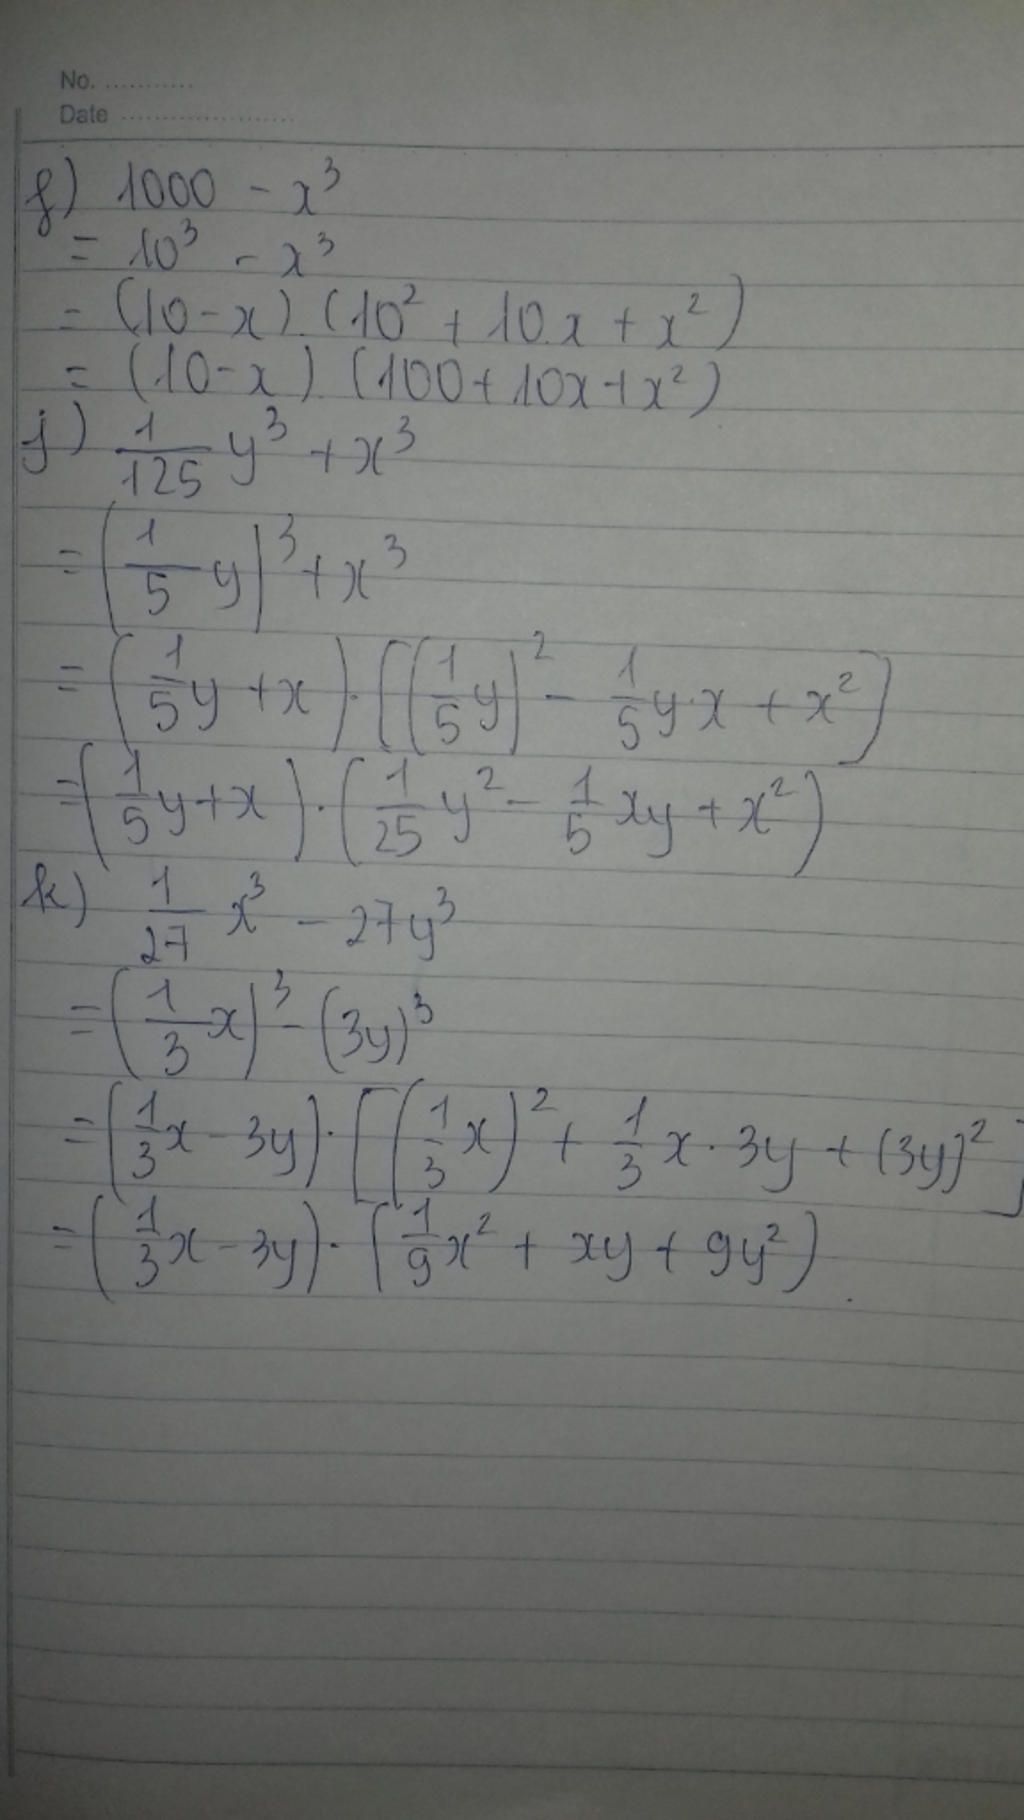 No. ...........
Date ......................
f) 1000 - x³
= 10³ - x³
= (10-x).(10² + 10.x + x²)
= (10-x).(100+10x+x²)
j) 1/125 y³ + x³
= (1/5 y)³ + x³
= (1/5 y + x)·[(1/5 y)² - 1/5 y·x + x²]
= (1/5 y + x)·(1/25 y² - 1/5 xy + x²)
k) 1/27 x³ - 27y³
= (1/3 x)³ - (3y)³
= (1/3 x - 3y)·[(1/3 x)² + 1/3 x · 3y + (3y)²]
= (1/3 x - 3y)·(1/9 x² + xy + 9y²).